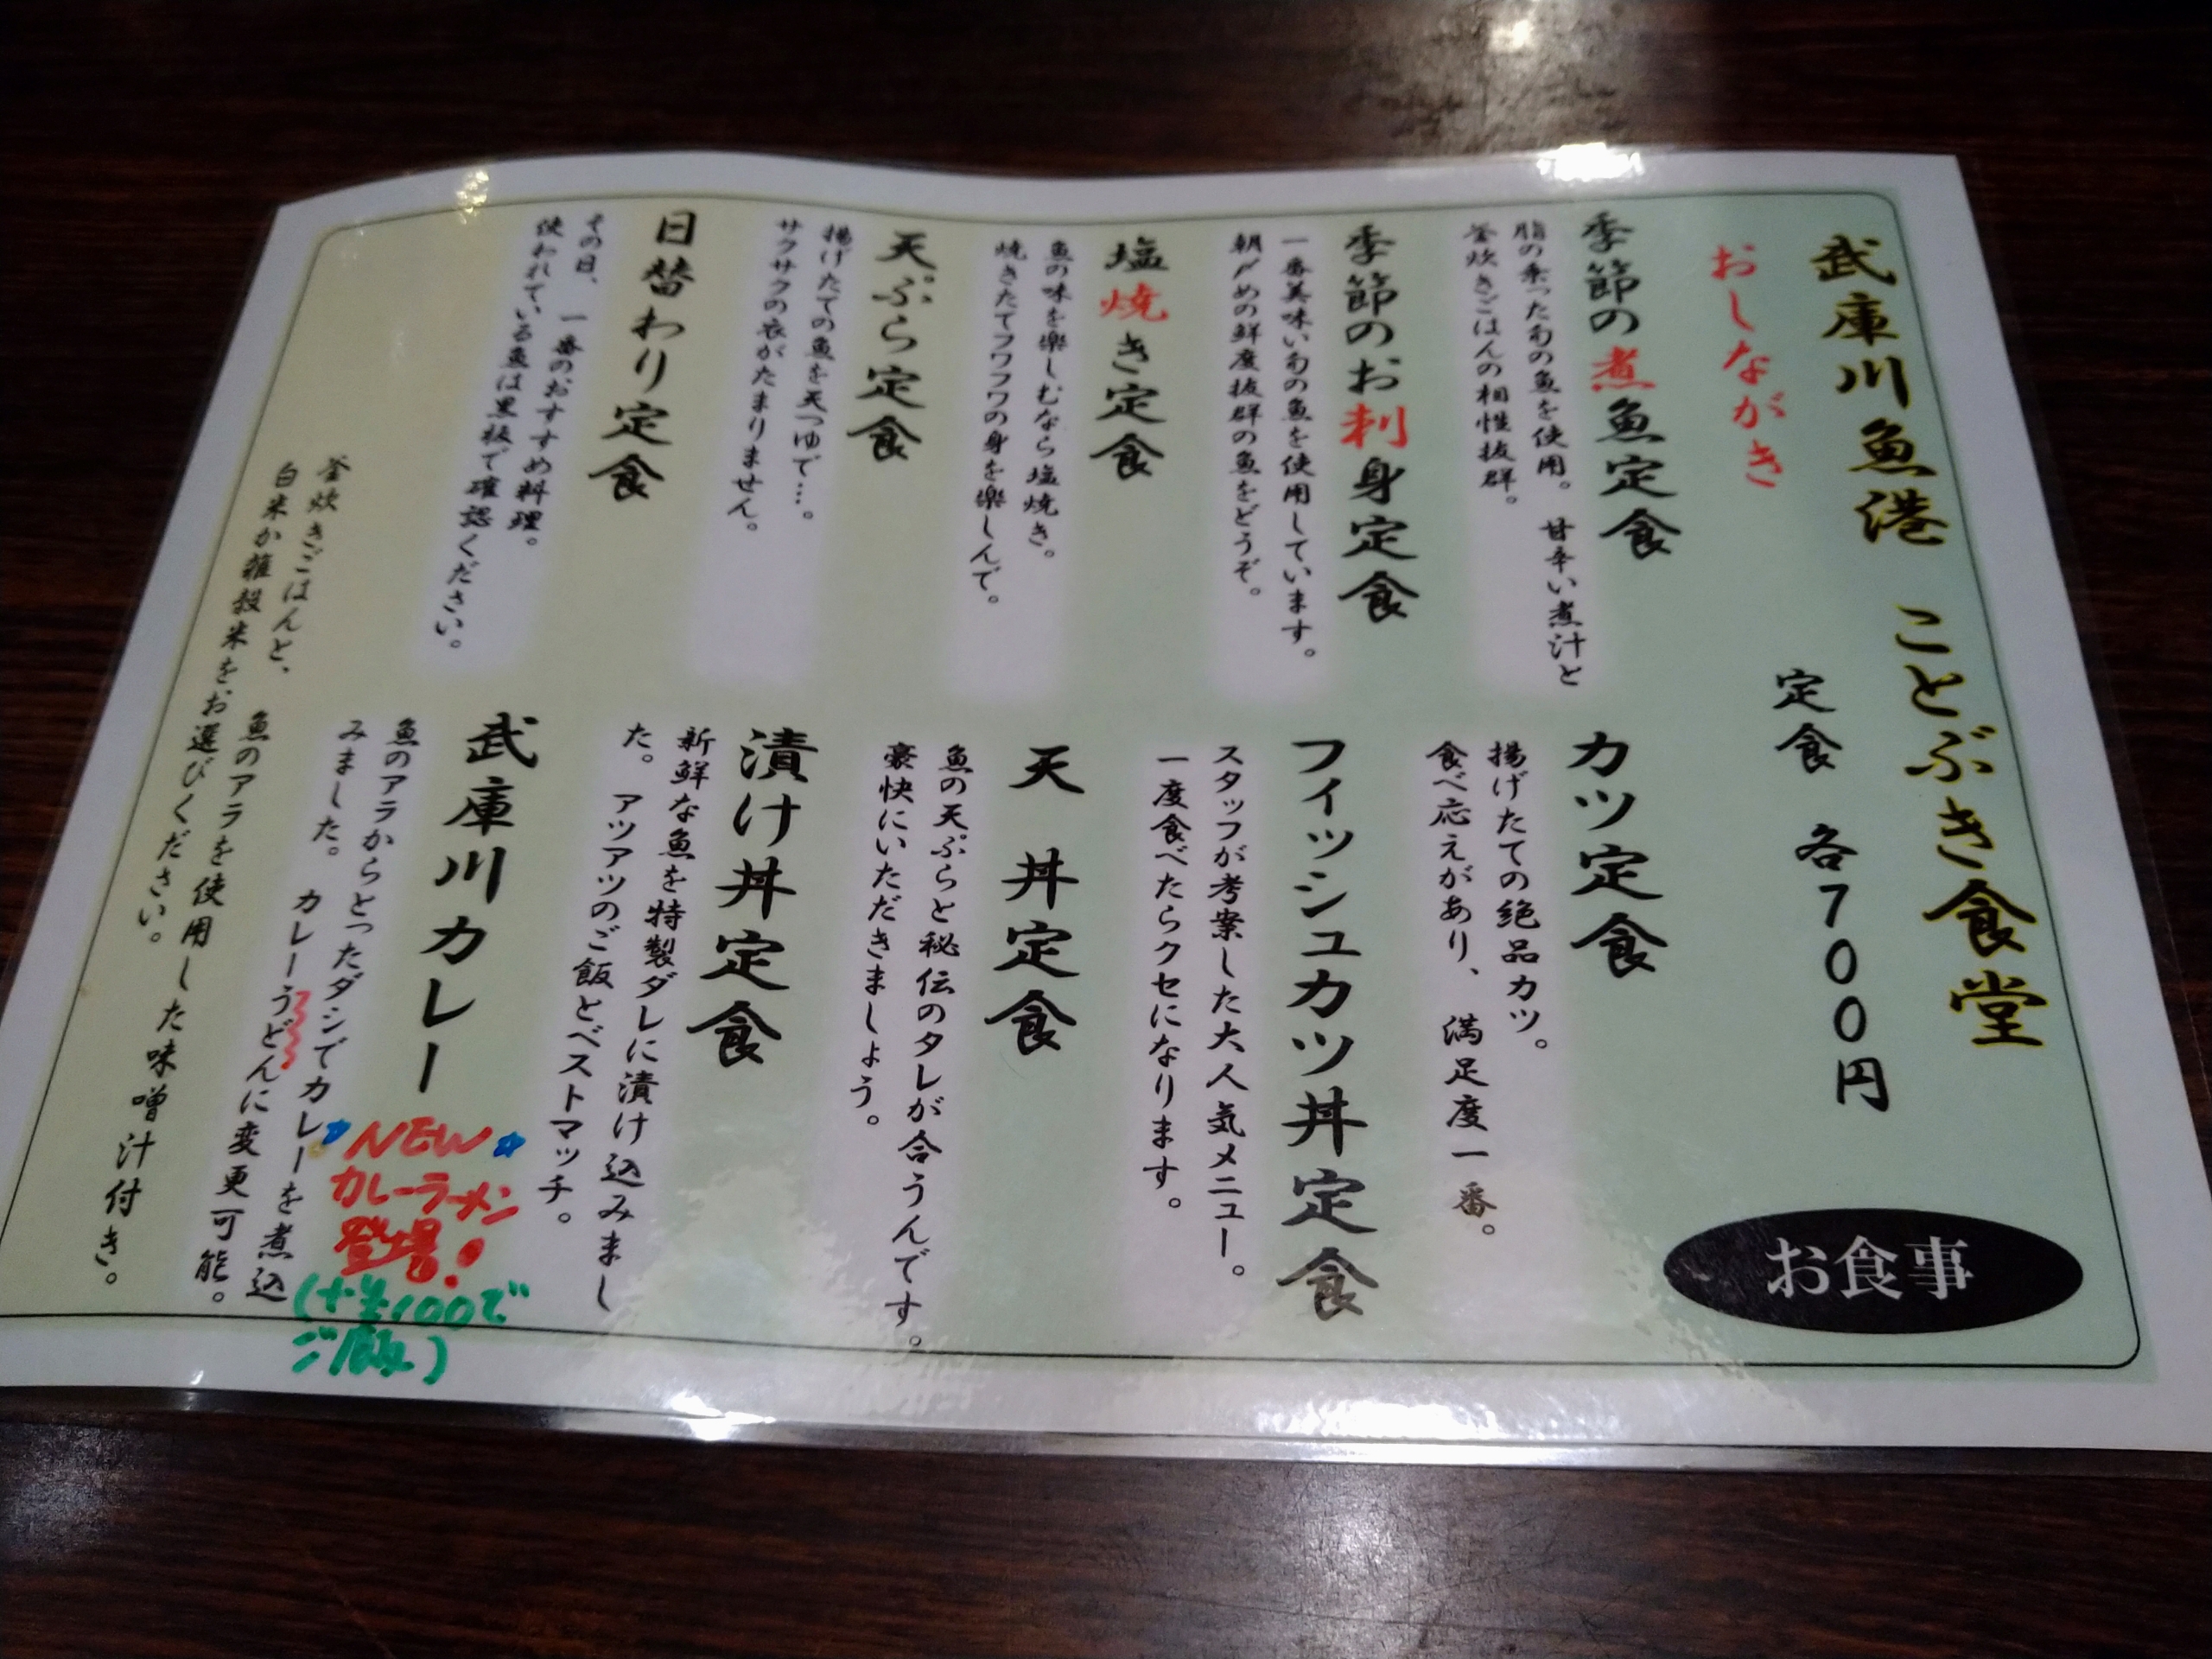 武庫川魚港 ことぶき食堂
おしながき
定食 各700円
お食事
季節の煮魚定食
脂の乗った旬の魚を使用。甘辛い煮汁と
釜炊きごはんの相性抜群。
季節のお刺身定食
一番美味い旬の魚を使用しています。
朝〆めの鮮度抜群の魚をどうぞ。
塩焼き定食
魚の味を楽しむなら塩焼き。
焼きたてフワフワの身を楽しんで。
天ぷら定食
揚げたての魚を天つゆで…。
サクサクの衣がたまりません。
日替わり定食
その日、一番のおすすめ料理。
使われている魚は黒板で確認ください。
カツ定食
揚げたての絶品カツ。
食べ応えがあり、満足度一番。
フィッシュカツ丼定食
スタッフが考案した大人気メニュー。
一度食べたらクセになります。
天丼定食
魚の天ぷらと秘伝のタレが合うんです。
豪快にいただきましょう。
漬け丼定食
新鮮な魚を特製ダレに漬け込みまし
た。アツアツのご飯とベストマッチ。
武庫川カレー
魚のアラからとったダシでカレーを煮込
みました。カレーうどんに変更可能。
NEW
カレーラーメン
登場!
(+¥100で
ご飯)
釜炊きごはんと、魚のアラを使用した味噌汁付き。
白米か雑穀米をお選びください。